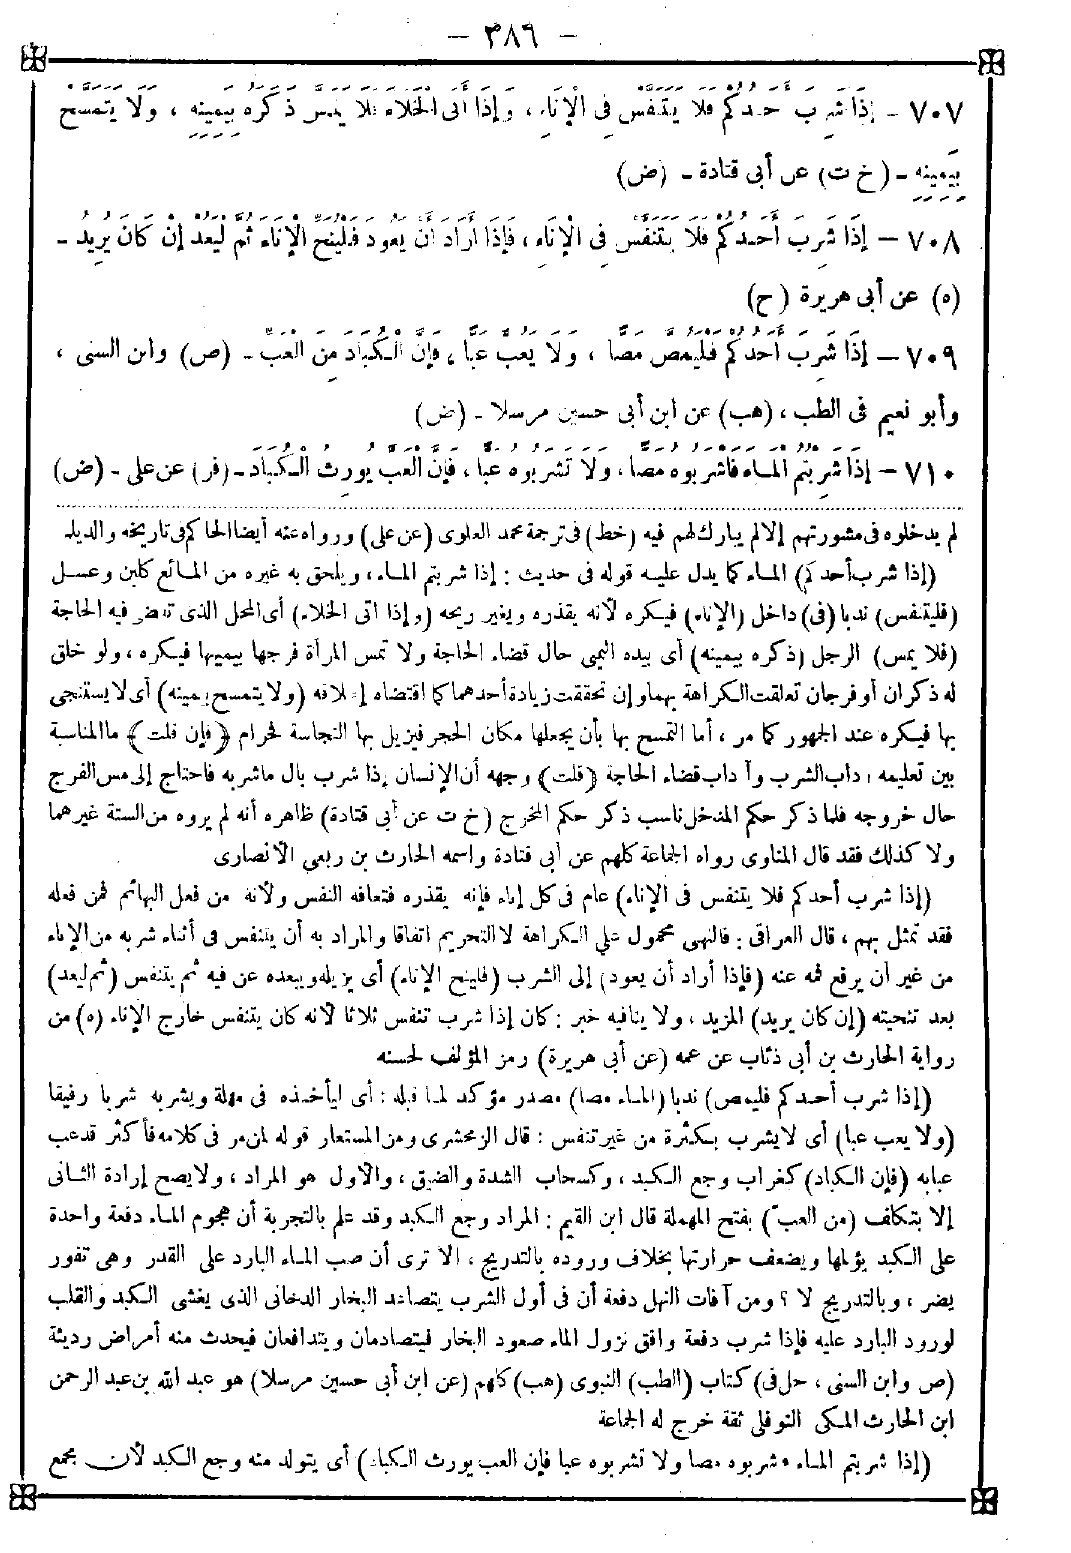 - ٣٨٦ -
٧٠٧ - إِذَا شَرِبَ أَحَدُكُمْ فَلَا يَتَنَفَّسْ فِى الْإِنَاءِ ، وَإِذَا أَتَى الْخَلَاءَ فَلَا يَمَسَّ ذَكَرَهُ بِيَمِينِهِ ، وَلَا يَتَمَسَّحْ
بِيَمِينِهِ - (خ ت) عن أبى قتادة - (صح)
٧٠٨ - إِذَا شَرِبَ أَحَدُكُمْ فَلَا يَتَنَفَّسْ فِى الْإِنَاءِ ، فَإِذَا أَرَادَ أَنْ يَعُودَ فَلْيُنَحِّ الْإِنَاءَ ثُمَّ لْيَعُدْ إِنْ كَانَ يُرِيدُ -
(ه) عن أبى هريرة (ح)
٧٠٩ - إِذَا شَرِبَ أَحَدُكُمْ فَلْيَمُصَّ مَصًّا ، وَلَا يَعُبَّ عَبًّا ، فَإِنَّ الْكُبَادَ مِنَ الْعَبِّ - (ص) وابن السنى ،
وأبو نعيم فى الطب ، (هب) عن ابن أبى حسين مرسلا - (ض)
٧١٠ - إِذَا شَرِبْتُمُ الْمَاءَ فَاشْرَبُوهُ مَصًّا ، وَلَا تَشْرَبُوهُ عَبًّا ، فَإِنَّ الْعَبَّ يُورِثُ الْكُبَادَ - (فر) عن على - (ض)
لم يدخلوه فى مشورتهم إلا لم يبارك لهم فيه (خط) فى ترجمة محمد العلوى (عن على) ورواه عنه أيضا الحاكم فى تاريخه والديلمى
(إذا شرب أحدكم) الماء كما يدل عليه قوله فى حديث : إذا شربتم الماء ، ويلحق به غيره من المائع كلبن وعسل
(فليتنفس) ندبا (فى) داخل (الإناء) فيكره لأنه يقذره ويغير ريحه (وإذا اتى الخلاء) أى المحل الذى تقضى فيه الحاجة
(فلا يمس) الرجل (ذكره بيمينه) أى بيده اليمنى حال قضاء الحاجة ولا تمس المرأة فرجها بيمينها فيكره ، ولو خلق
له ذكران أو فرجان تعلقت الكراهة بهما وإن تحققت زيادة أحدهما كما اقتضاه إطلاقه (ولا يتمسح بيمينه) أى لا يستنجى
بها فيكره عند الجمهور كما مر ، أما التمسح بها بأن يجعلها مكان الحجر فيزيل بها النجاسة فحرام (فإن قلت) ما المناسبة
بين تعليمه آداب الشرب وآداب قضاء الحاجة (قلت) وجهه أن الإنسان إذا شرب بال ما شربه فاحتاج إلى مس الفرج
حال خروجه فلما ذكر حكم المدخل ناسب ذكر حكم المخرج (خ ت عن أبى قتادة) ظاهره أنه لم يروه من الستة غيرهما
ولا كذلك فقد قال المناوى رواه الجماعة كلهم عن أبى قتادة واسمه الحارث بن ربعى الأنصارى
(إذا شرب أحدكم فلا يتنفس فى الإناء) عام فى كل إناء فإنه يقذره فتعافه النفس ولأنه من فعل البهائم فمن فعله
فقد تمثل بهم ، قال العراقى : فالنهى محمول على الكراهة لا التحريم اتفاقا والمراد به أن يتنفس فى أثناء شربه من الإناء
من غير أن يرفع فمه عنه (فإذا أراد أن يعود) إلى الشرب (فلينح الإناء) أى يزيله ويبعده عن فيه ثم يتنفس (ثم ليعد)
بعد تنحيته (إن كان يريد) المزيد ، ولا ينافيه خبر : كان إذا شرب تنفس ثلاثا لأنه كان يتنفس خارج الإناء (ه) من
رواية الحارث بن أبى ذئاب عن عمه (عن أبى هريرة) رمز المؤلف لحسنه
(إذا شرب أحدكم فليمص) ندبا (الماء مصا) مصدر مؤكد لما قبله : أى ليأخذه فى مهلة ويشربه شربا رفيقا
(ولا يعب عبا) أى لا يشرب بكثرة من غير تنفس : قال الزمخشرى ومن المستعار قوله لمن مر فى كلامه فأكثر قد عب
عبابه (فإن الكباد) كغراب وجع الكبد ، وكسحاب الشدة والضيق ، والأول هو المراد ، ولا يصح إرادة الثانى
إلا بتكلف (من العب) بفتح المهملة قال ابن القيم : المراد وجع الكبد وقد علم بالتجربة أن هجوم الماء دفعة واحدة
على الكبد يؤلمها ويضعف حرارتها بخلاف وروده بالتدريج ، الا ترى أن صب الماء البارد على القدر وهى تفور
يضر ، وبالتدريج لا ؟ ومن آفات النهل دفعة أن فى أول الشرب يتصاعد البخار الدخانى الذى يغشى الكبد والقلب
لورود البارد عليه فإذا شرب دفعة وافق نزول الماء صعود البخار فيتصادمان ويتدافعان فيحدث منه أمراض رديئة
(ص وابن السنى ، حل فى) كتاب (الطب) النبوى (هب) كلهم (عن ابن أبى حسين مرسلا) هو عبد الله بن عبد الرحمن
ابن الحارث المكى النوفلى ثقة خرج له الجماعة
(إذا شربتم الماء فاشربوه مصا ولا تشربوه عبا فإن العب يورث الكباد) أى يتولد منه وجع الكبد لأن مجمع